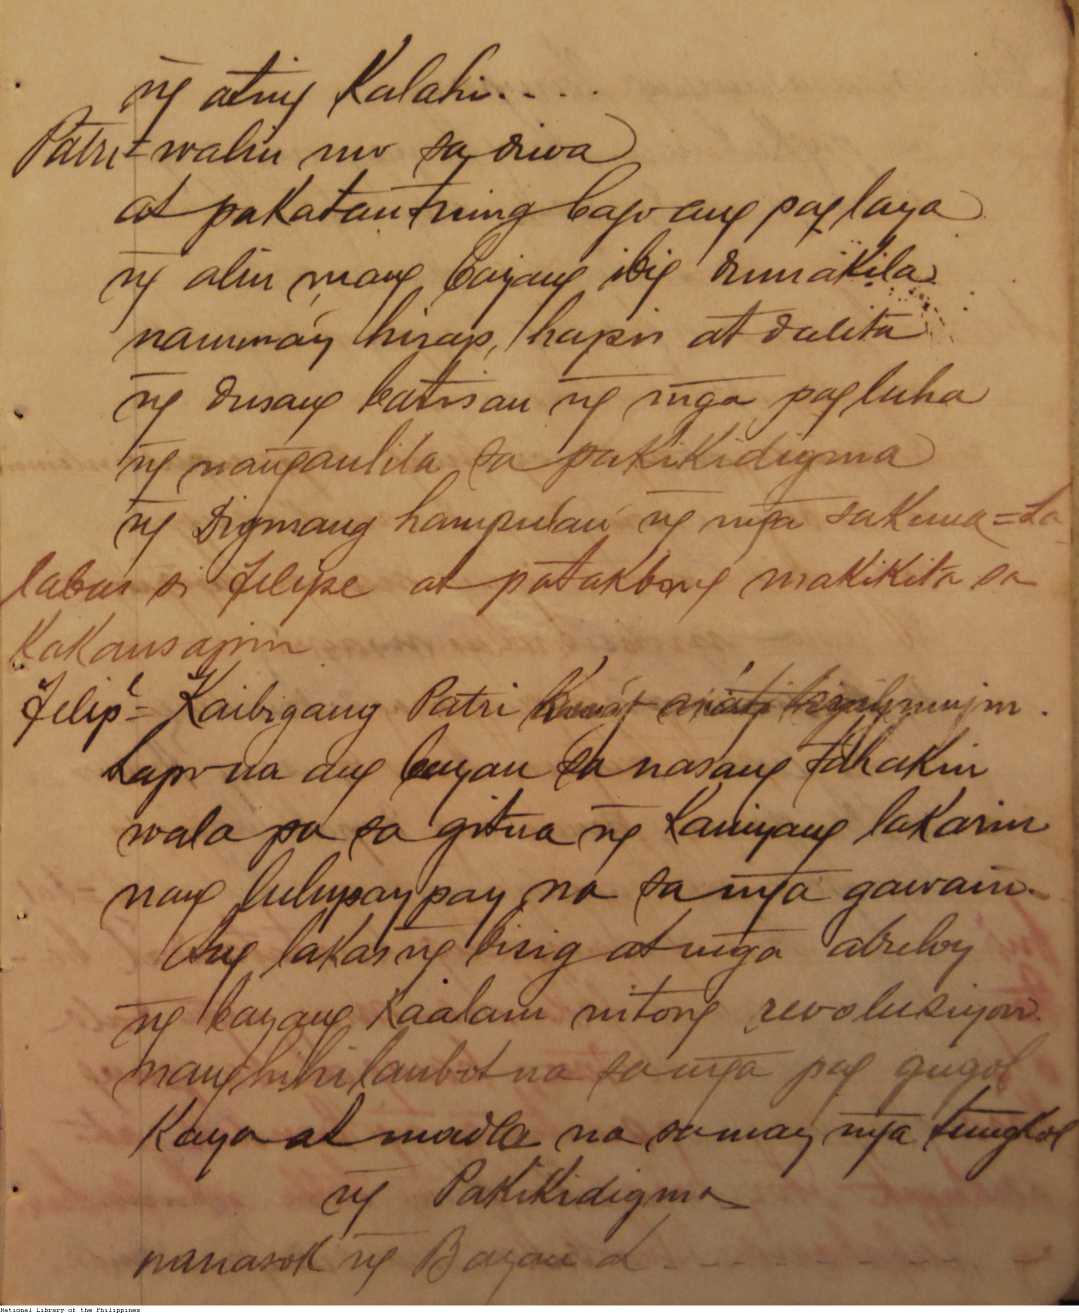 ng ating Kalahi....
Patri= waliu mo sa diwa
at pakatantuing bago ang paglaya
ng alin mang bayang ibig dumakila
naunmáy hirap, hapis at dalita
ng dusang batisan ng mga pagluha
ng nangaulila sa pakikidigma
ng Digmang hampulan ng mga sakuna= La-
labas si Felipe at patakbong makikita sa
Kakausapin
Felipe= Kaibigang Patri
Lapo na ang bayan sa nasang tahakin
wala pa sa gitna ng kaniyang lakarin
nag lulupaypay na sa mga gawain.
Ang lakas ng bisig at mga abuloy
ng bayang Kaalam nitong revolusiyon.
nanghihilambot na sa mga pag gugol
Kaya at madla na sa may mga tungkol
ng Pakikidigma
nanasok ng Bayan
National Library of the Philippines